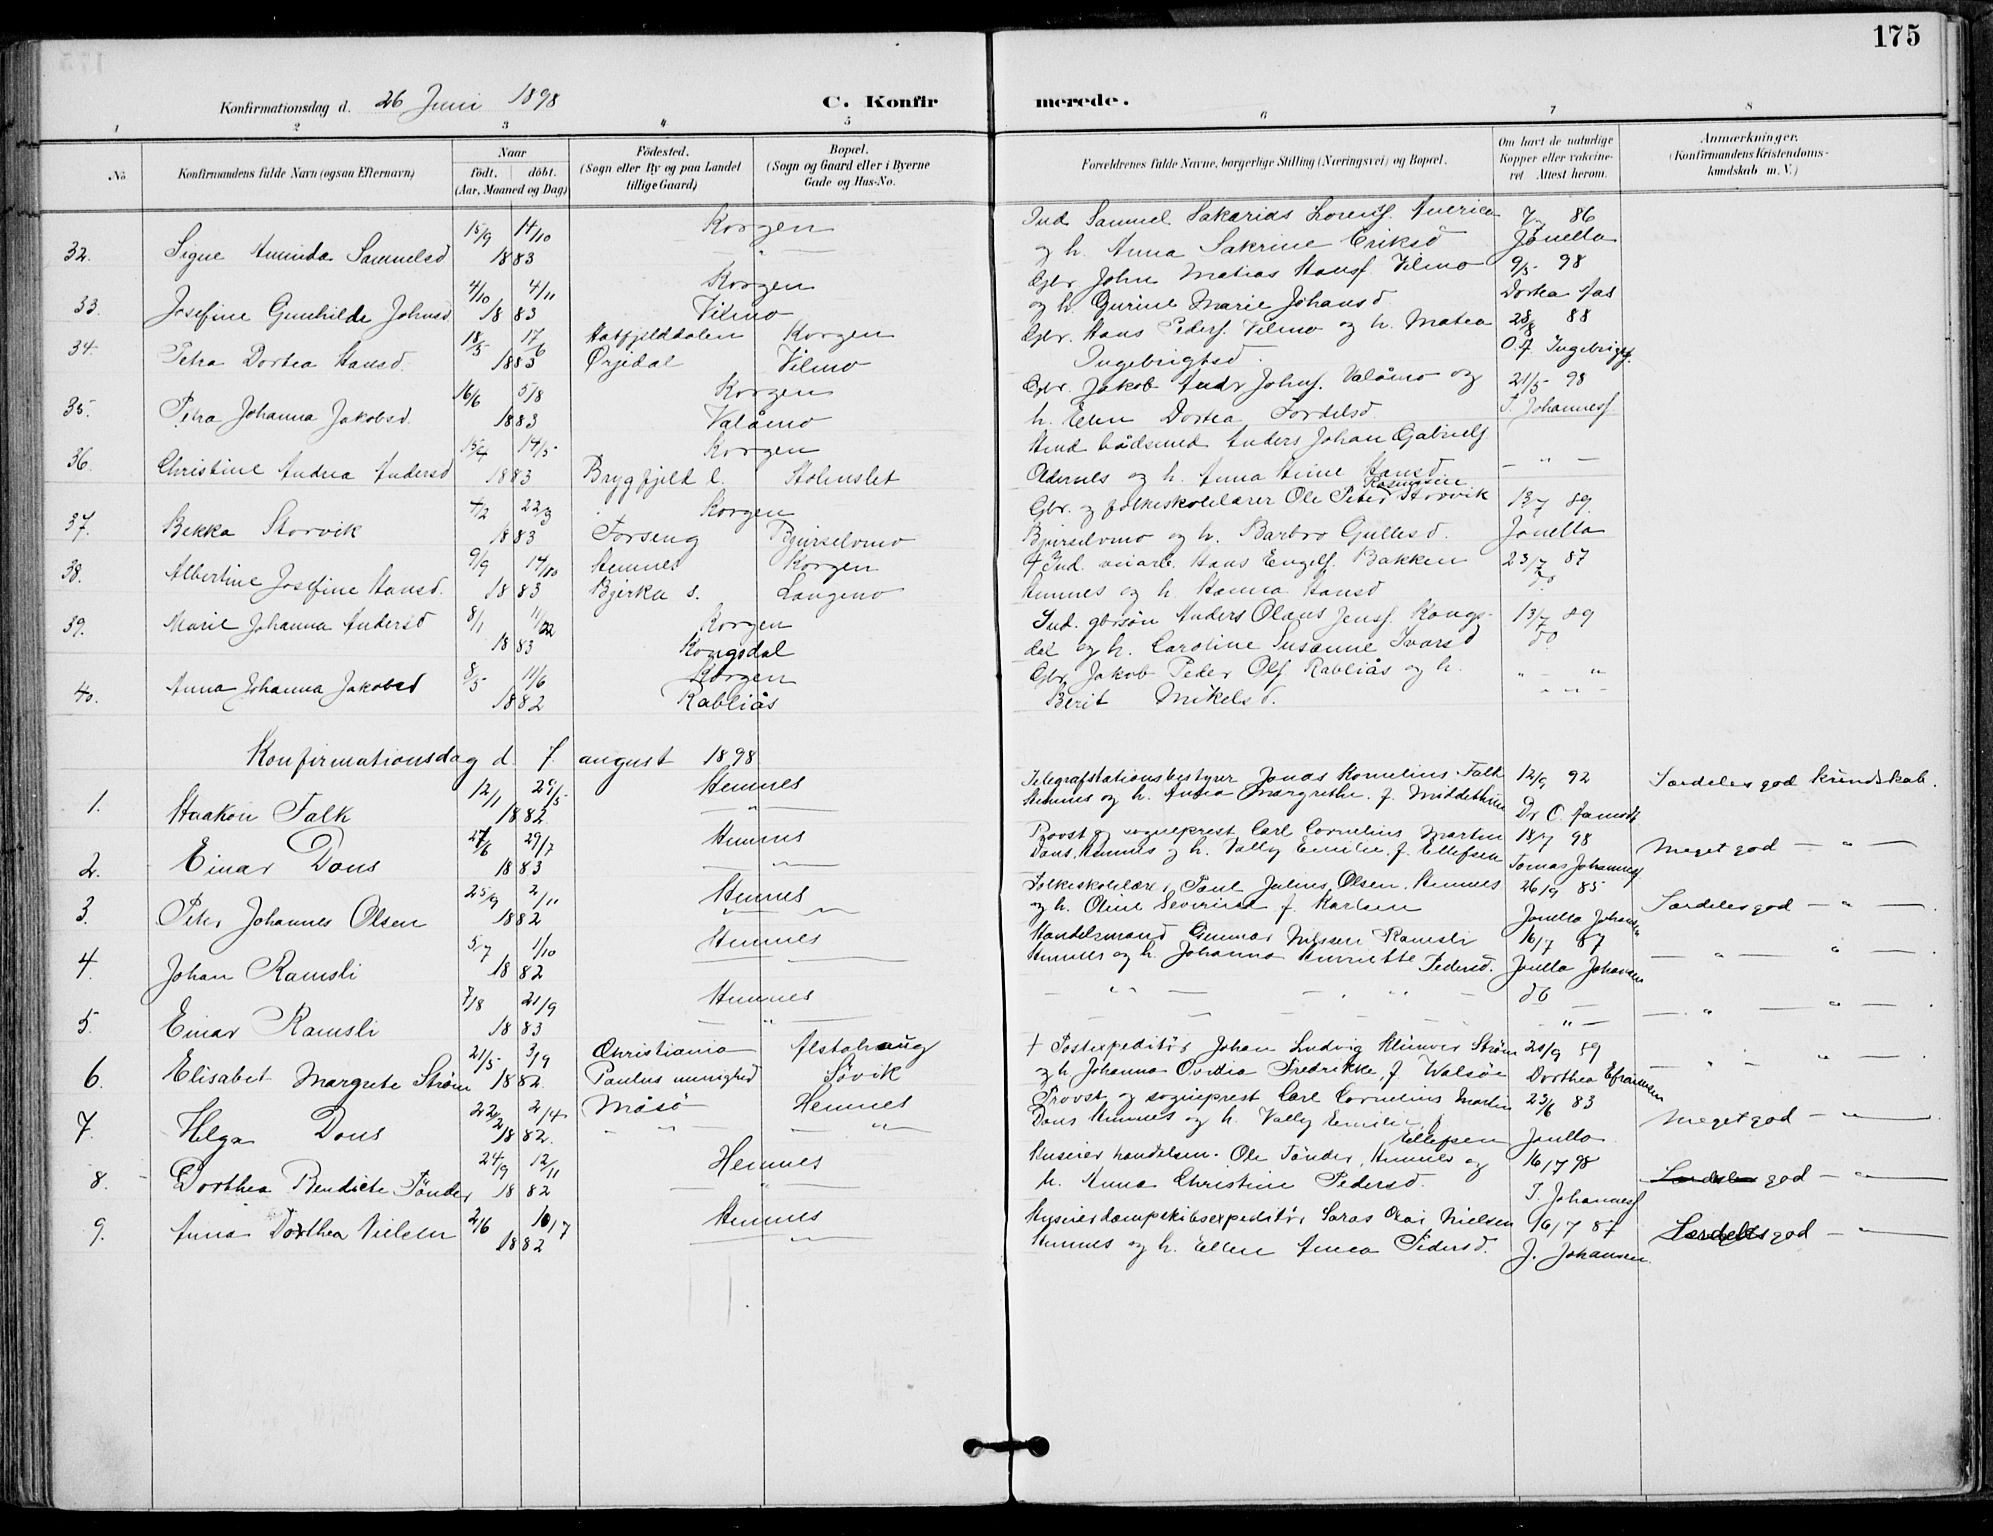 175
Konfirmationsdag d. 26 Juni 1898
C. Konfirmerede.
1 2 3 4 5 6 7 8
No.
Konfirmandens fulde Navn (ogsaa Efternavn)
Naar
födt. döbt.
(Aar, Maaned og Dag)
Födested.
(Sogn eller By og paa Landet
tillige Gaard)
Bopæl.
(Sogn og Gaard eller i Byerne
Gade og Hus-No.
Forældrenes fulde Navne, borgerlige Stilling (Næringsvei) og Bopæl.
Om havt de naturlige
Kopper eller vakcine-
ret Attest herom.
Anmærkninger.
(Konfirmandens Kristendoms-
kundskab m. V.)
32. Signe Aminda Samuelsd 15/9 14/10 1883 Korgen
Ind Samuel Sakarias Lorensf. America
og h. Anna Sakrine Eriksd 86 Jonetta
33. Josefine Gunhilde Johnsd 4/10 4/11 1883 Korgen Vilmo
Gbr. John Matias Hansf. Vilmo 9/5 98
og h. Gurine Marie Johansd. Dortea Aas
34. Petra Dortea Hansd. 18/5 17/6 1883 Hatfjelddalen Örjedal Korgen Vilmo
Gbr. Hans Pedersf. Vilmo og h. Matea 28/8 88
Ingebrigtsd. O. A Ingebrigtf.
35. Petra Johanna Jakobsd 16/6 5/8 1883 Korgen Valåmo
Gbr. Jakob Andr Johnsf. Valåmo og 21/5 98
h. Elen Dortea Tordelsd. T. Johannesf
36. Christine Andrea Andersd 14/5 1883 Brygfjeld l. Korgen Holmslet
Hmd bådsmed Anders Johan Gabrielsf
Oldernes og h. Anna Stine Hansd. — " —
37. Bekka Storvik 4/2 22/3 1883 Forseng Korgen Bjurselvmo
Gbr. og folkeskolelærer Ole Peter Rasmusen Storvik 13/7 89.
Bjurselvmo og h. Barbro Gullesd. Jonetta
38. Albertine Josefine Hansd. 9/9 14/10 1883 Hemnes Bjerka s. Korgen Langmo
† Ind. Hans Engelsf. Bakken 23/7 87
Hemnes og h. Hanna Hansd do
39. Marie Johanna Andersd 8/1 11/2 1883 Korgen Kongsdal
Ind. gbrsön Anders Olaus Jensf. Kongs- 13/7 89
dal og h. Caroline Susanne Ivarsd do
40. Anna Johanna Jakobsd 8/5 11/6 1882 Korgen Rabliås
Gbr. Jakob Peder Olsf Rabliås og h. " - "
Berit Mikelsd. - " -
Konfirmationsdag d. 7. august 1898
1. Haakon Falk 12/1 29/5 1882. Hemnes "
Telegrafstationsbestyrer Jonas Kornelius Falk 12/9 92 Særdeles god kundskab.
Hemnes og h. Anna Margrethe. f. Middelthun Dr C.
2. Einar Dons 27/6 29/7 1883 Hemnes — " —
Provst og sogneprest Carl Cornelius Martin 18/7 98 Meget god — " —
Dons. Hemnes og h. Vally Emilie. f. Ellefsen Tomas Johannesf
3. Peter Johannes Olsen 25/9 2/11 1882 Hemnes " —
Folkeskolelærer Paul Julius Olsen. Hemnes 26/9 85 Særdeles god — " —
og h. Oline Severine f. Karlsen Jonetta Johansen
4. Johan Ramsli 5/7 1/10 1882 Hemnes
Handelsmand Gunnar Nilssen Ramsli 16/7 87
Hemnes og h. Johanna Henriette Pedersd. Jonetta Johansen — " — " —
5. Einar Ramsli 7/8 21/9 1883 Hemnes — " —
— " — — " — do — " — — " — " —
6. Elisabet Margrete Ström 21/5 3/9 1882. Christiania Paulus menighed Alstahaug Sövik
† Postexpeditör Johan Ludvig Klüwer Ström 20/9 89
og h. Johanna Ovidia Fredrikke, f Walsöe Dorthea Efraimsen — " — " —
7. Helga Dons 22/2 2/4 1882. Måsö Hemnes
Provst og sogneprest Carl Cornelius Martin 23/6 83
Dons Hemnes og h. Vally Emilie f. Ellefsen Jonetta Meget god — " —
8. Dorthea Bendicte Tönder 24/9 12/11 1882 Hemnes "
Huseier handelsm. Ole Tönder, Hemnes og 16/7 98
h. Anna Christine Pedersd. T. Johannesf Særdeles god — " —
9. Anna Dorthea Nielsen 2/6 16/7 1882 Hemnes "
Huseier dampskibsexpeditör Saras Olai Nielsen 16/7 87 Særdeles god — " —
Hemnes og h. Ellen Anna Pedersd. J. Johansen